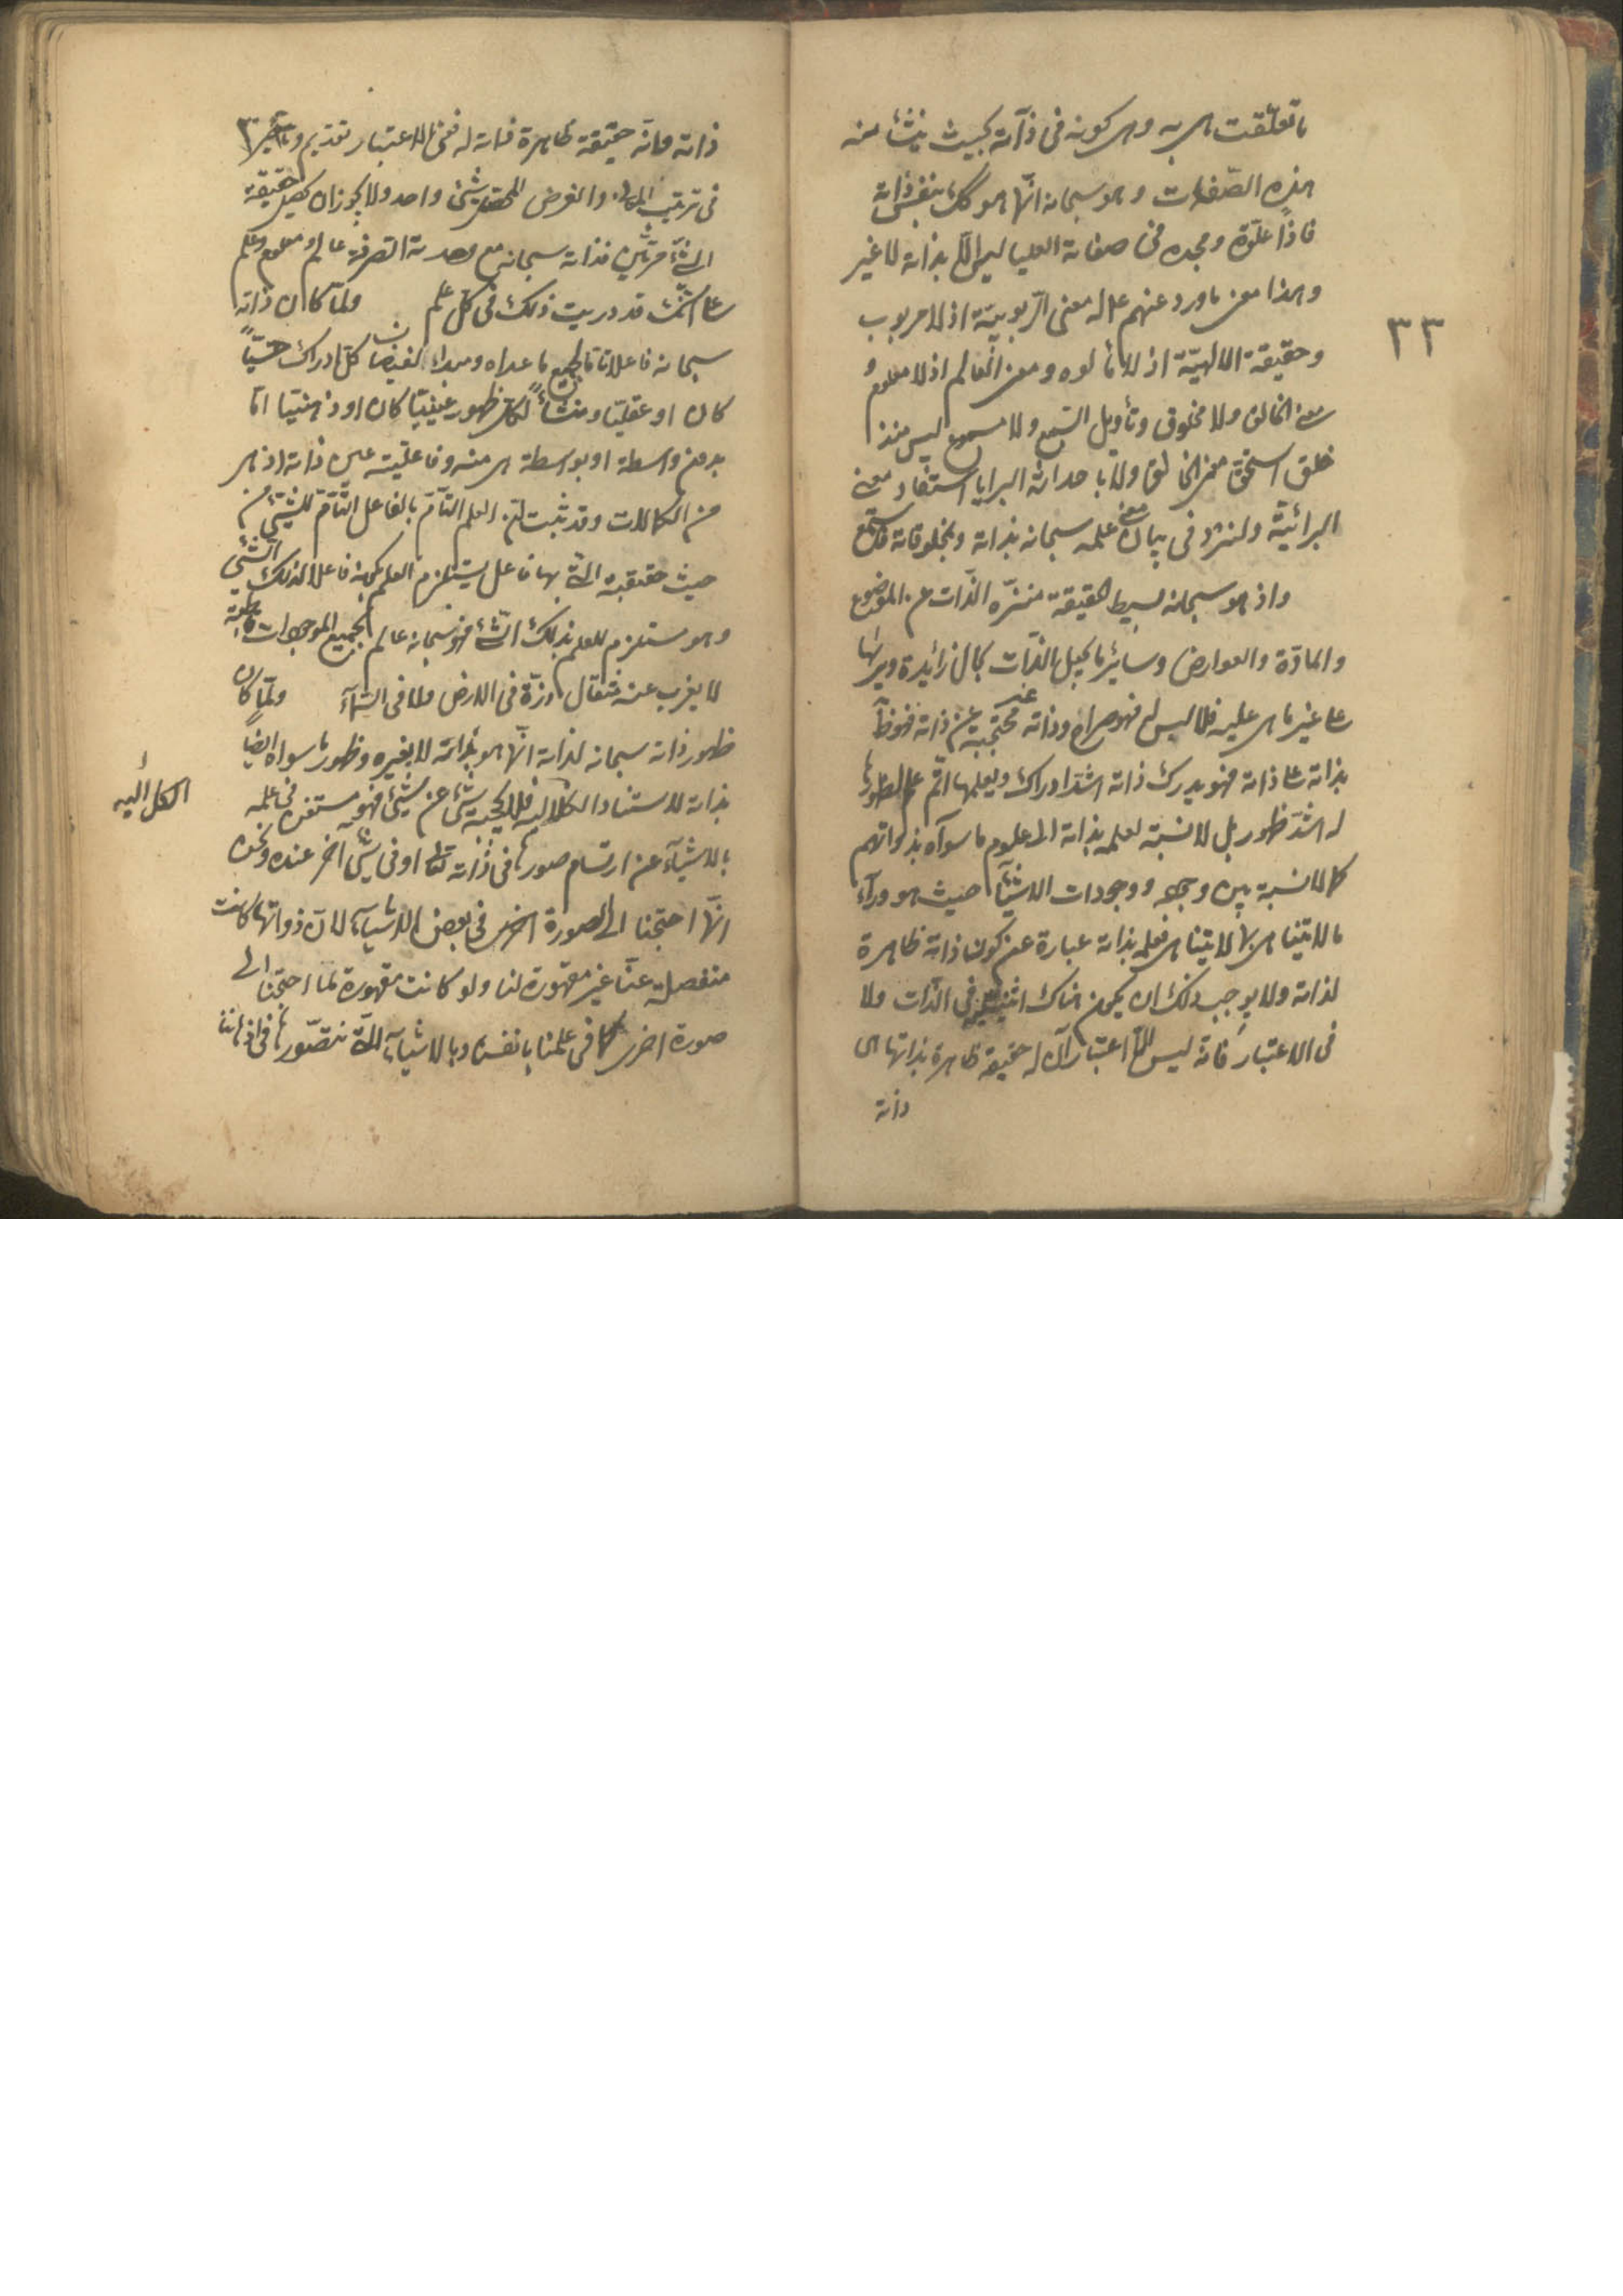 ما تعلقت هى به وهى كونه فى ذاته بحيث ينشأ منه
هذه الصفات وهو سبحانه انما هو كك بنفس ذاته
فاذا علوه ومجده فى صفاته العليا ليس الا بذاته لا غير
وهذا معنى ما ورد عنهم ع له معنى الربوبية اذ لا مربوب
وحقيقة الالهية اذ لا مألوه ومعنى العالم اذ لا معلوم و
معنى الخالق ولا مخلوق وتأويل السمع ولا مسموع ليس منذ
خلق استحق معنى الخالق ولا باحداثه البرايا استفاد معنى
البرائية ولنزد فى بيان معنى علمه سبحانه بذاته وبمخلوقاته فاستمع
واذ هو سبحانه بسيط الحقيقة منزه الذات عن الموضوع
والمادة والعوارض وساير ما يجعل الذات بحال زايدة ويريها
على غير ما هى عليه فلا ليس له فهو صراح وذاته غير محتجبة عن ذاته فهو ظاهر
بذاته على ذاته فهو يدرك ذاته اشد ادراك ويعلمها اتم علم لظهورها
له اشد ظهور بل لا نسبة لعلمه بذاته الى علوم ما سواه بذواتهم
كما لا نسبة بين وجوده ووجودات الاشياء حيث هو وراء
ما لا يتناهى بما لا يتناهى فعلمه بذاته عبارة عن كون ذاته ظاهرة
لذاته ولا يوجب ذلك ان يكون هناك اثنينية فى الذات ولا
فى الاعتبار فانه ليس الا اعتبار ان له حقيقة ظاهرة بذاتها هى
ذاته
٣٣
ذاته وانه حقيقة ظاهرة ذاته له ففى الاعتبار تقديم وتأخير
فى ترتيب المعانى والغرض المحصل شئ واحد ولا يجوز ان يحصل حقيقة
الشئ مرتين فذاته سبحانه مع وحدته الصرفة عالم ومعلوم وعلم
على انك قد دريت ذلك فى كل علم ولما كان ذاته
سبحانه فاعلا تاما لجميع ما عداه ومبدأ لفيضان كل ادراك حسيا
كان او عقليا ومنشأ لكل ظهور عينيا كان او ذهنيا اما
بدون واسطة او بواسطة هى منه وفاعليته عين ذاته اذ هى
من الكمالات وقد ثبت ان العلم التام بالفاعل التام للشئ من
حيث حقيقته التى بها فاعل يستلزم العلم بكونه فاعلا لذلك الشئ
وهو مستلزم للعلم بذلك الشئ فهو سبحانه عالم بجميع الموجودات
لا يعزب عنه مثقال ذرة فى الارض ولا فى السماء ولما كان
ظهور ذاته سبحانه لذاته انما هو بذاته لا بغيره وظهور ما سواه ايضا
بذاته لاستناد الكل اليه فلا يحجبه شئ عن شئ فهو مستغن فى علمه
بالاشياء عن ارتسام صورها فى ذاته تعالى او فى شئ اخر عنده ونحن
انما احتجنا الى الصورة اخرى فى بعض الاشياء لان ذواتها كانت
منفصلة عنا غير مقهورة لنا ولو كانت مقهورة لما احتجنا الى
صورة اخرى كما فى علمنا بانفسنا وبالاشياء التى نتصورها فى اذهاننا
الكل اليه